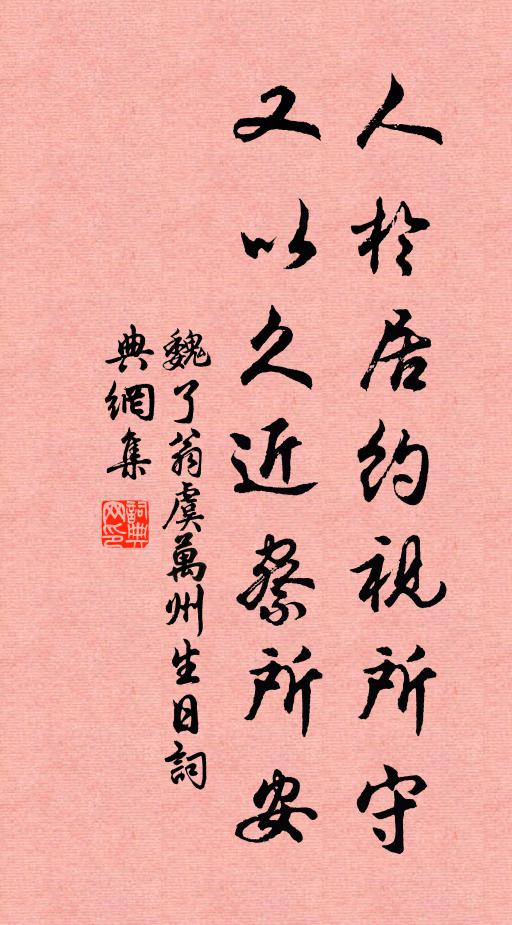 人於居約視所守
又以久近察所安
魏了翁虞萬州生日詞
典網集
詞典
网印